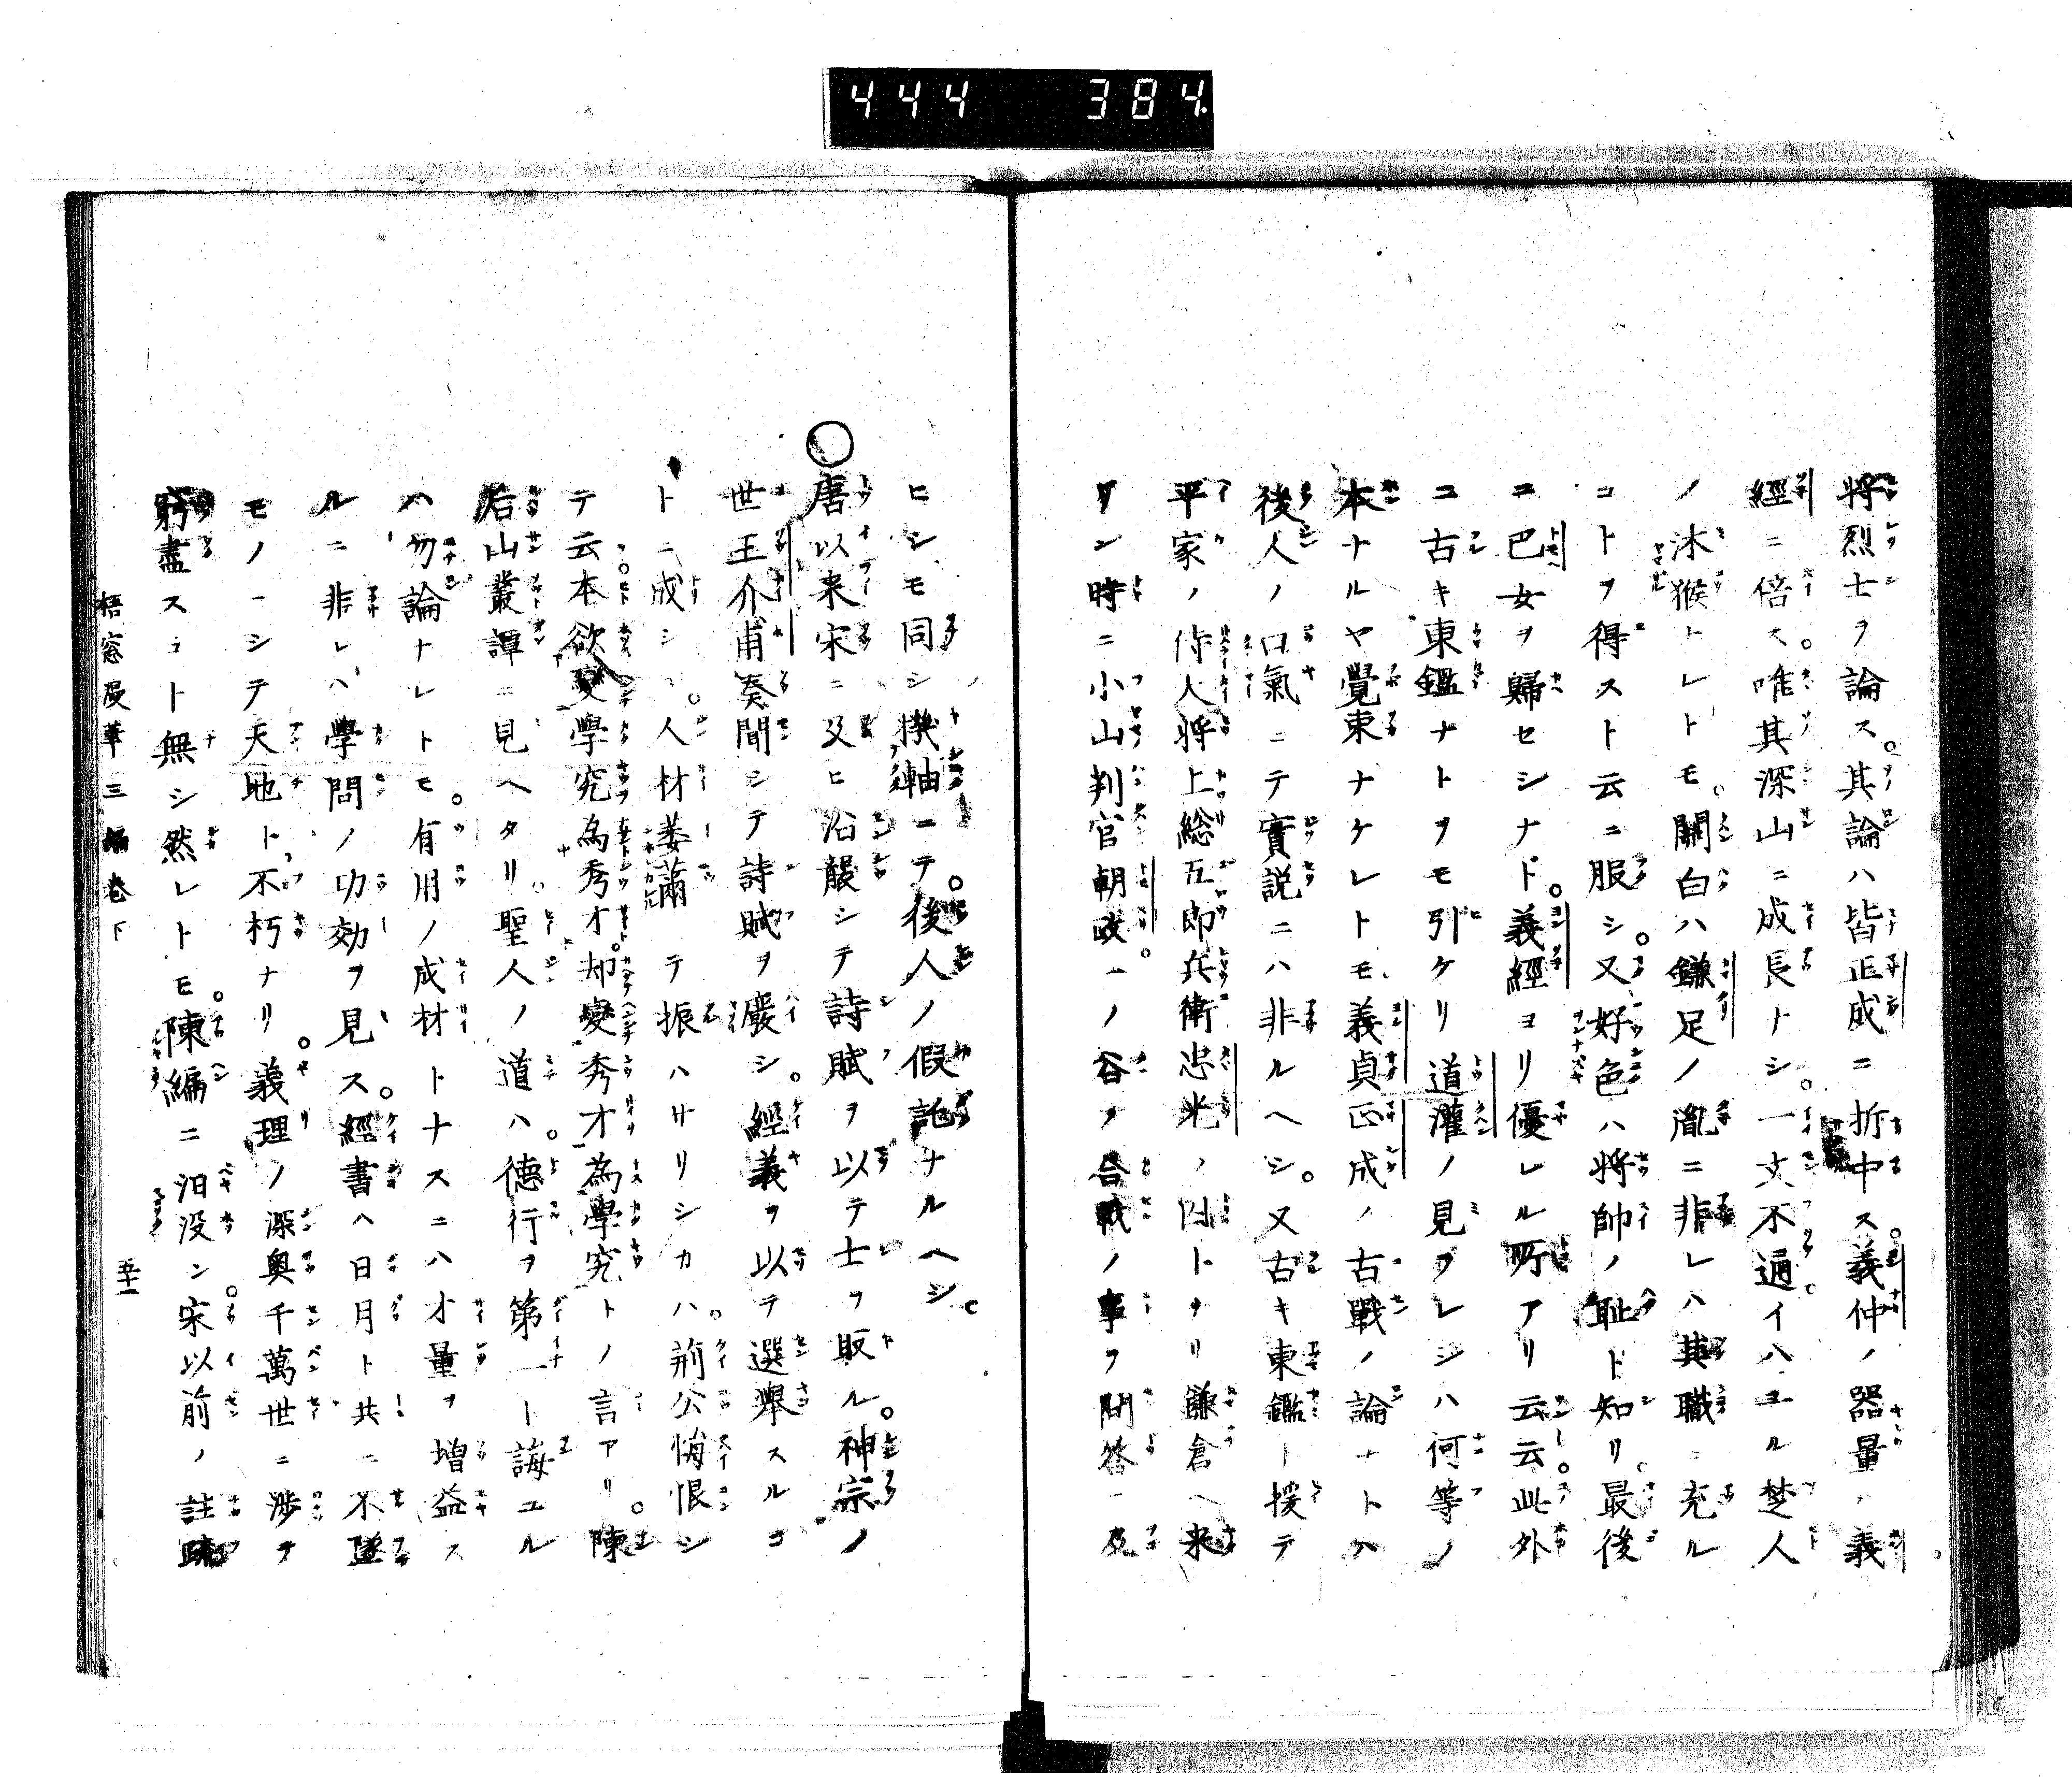 444 384
将烈士ヲ論ス。其論ハ皆正成ニ折中ス。義仲ノ器量ハ義
經ニ倍ス。唯其深山ニ成長トシ。一文不通イハユル楚人
ノ沐猴トレトモ。關白ハ鎌足ノ胤ニ非レハ其職ニ充ル
コトヲ得スト云ニ服シ。又好色ハ将帥ノ恥ト知リ。最後
ニ巴女ヲ歸セシナド。義經ヨリ優レル所アリ云云。此外
ニ古キ東鑑ナトヲモ引ケリ道灌ノ見ヲレシハ何等ノ
本ナルヤ覺束ナケレトモ義貞正成ノ古戰ノ論ナトハ
後人ノ口氣ニテ實説ニハ非ルヘシ。又古キ東鑑ト援テ
平家ノ侍大将上総五郎兵衛忠光ノ囚トナリ鎌倉ヘ来
リシ時ニ小山判官朝政一ノ谷ヲ合戰ノ事ヲ問答ニ及
ヒシモ同シ機軸ニテ。後人ノ假託ナルヘシ。
○唐以来宋ニ及ヒ沿襲シテ詩賦ヲ以テ士ヲ取ル。神宗ノ
世王介甫奏聞シテ詩賦ヲ廢シ。經義ヲ以テ選擧スルコ
トニ成シニ。人材萎薾テ振ハサリシカハ。荊公悔恨シ
テ云本欲變學究為秀才。却變秀才為學究トノ言アリ。陳
后山叢譚ニ見ヘタリ。聖人ノ道ハ。徳行ヲ第一ト誨ユル
ハ勿論ナレトモ。有用ノ成材トナスニハ才量ヲ増益ス
ルニ非レハ學問ノ功効ヲ見ス。經書ハ日月ト共ニ不墜
モノニシテ天地ト不朽ナリ。義理ノ深奥千萬世ニ渉ヲ
窮盡スコト無シ然レトモ。陳編ニ汨没シ。宋以前ノ註疏
梧窓漫筆三編巻下
五十一